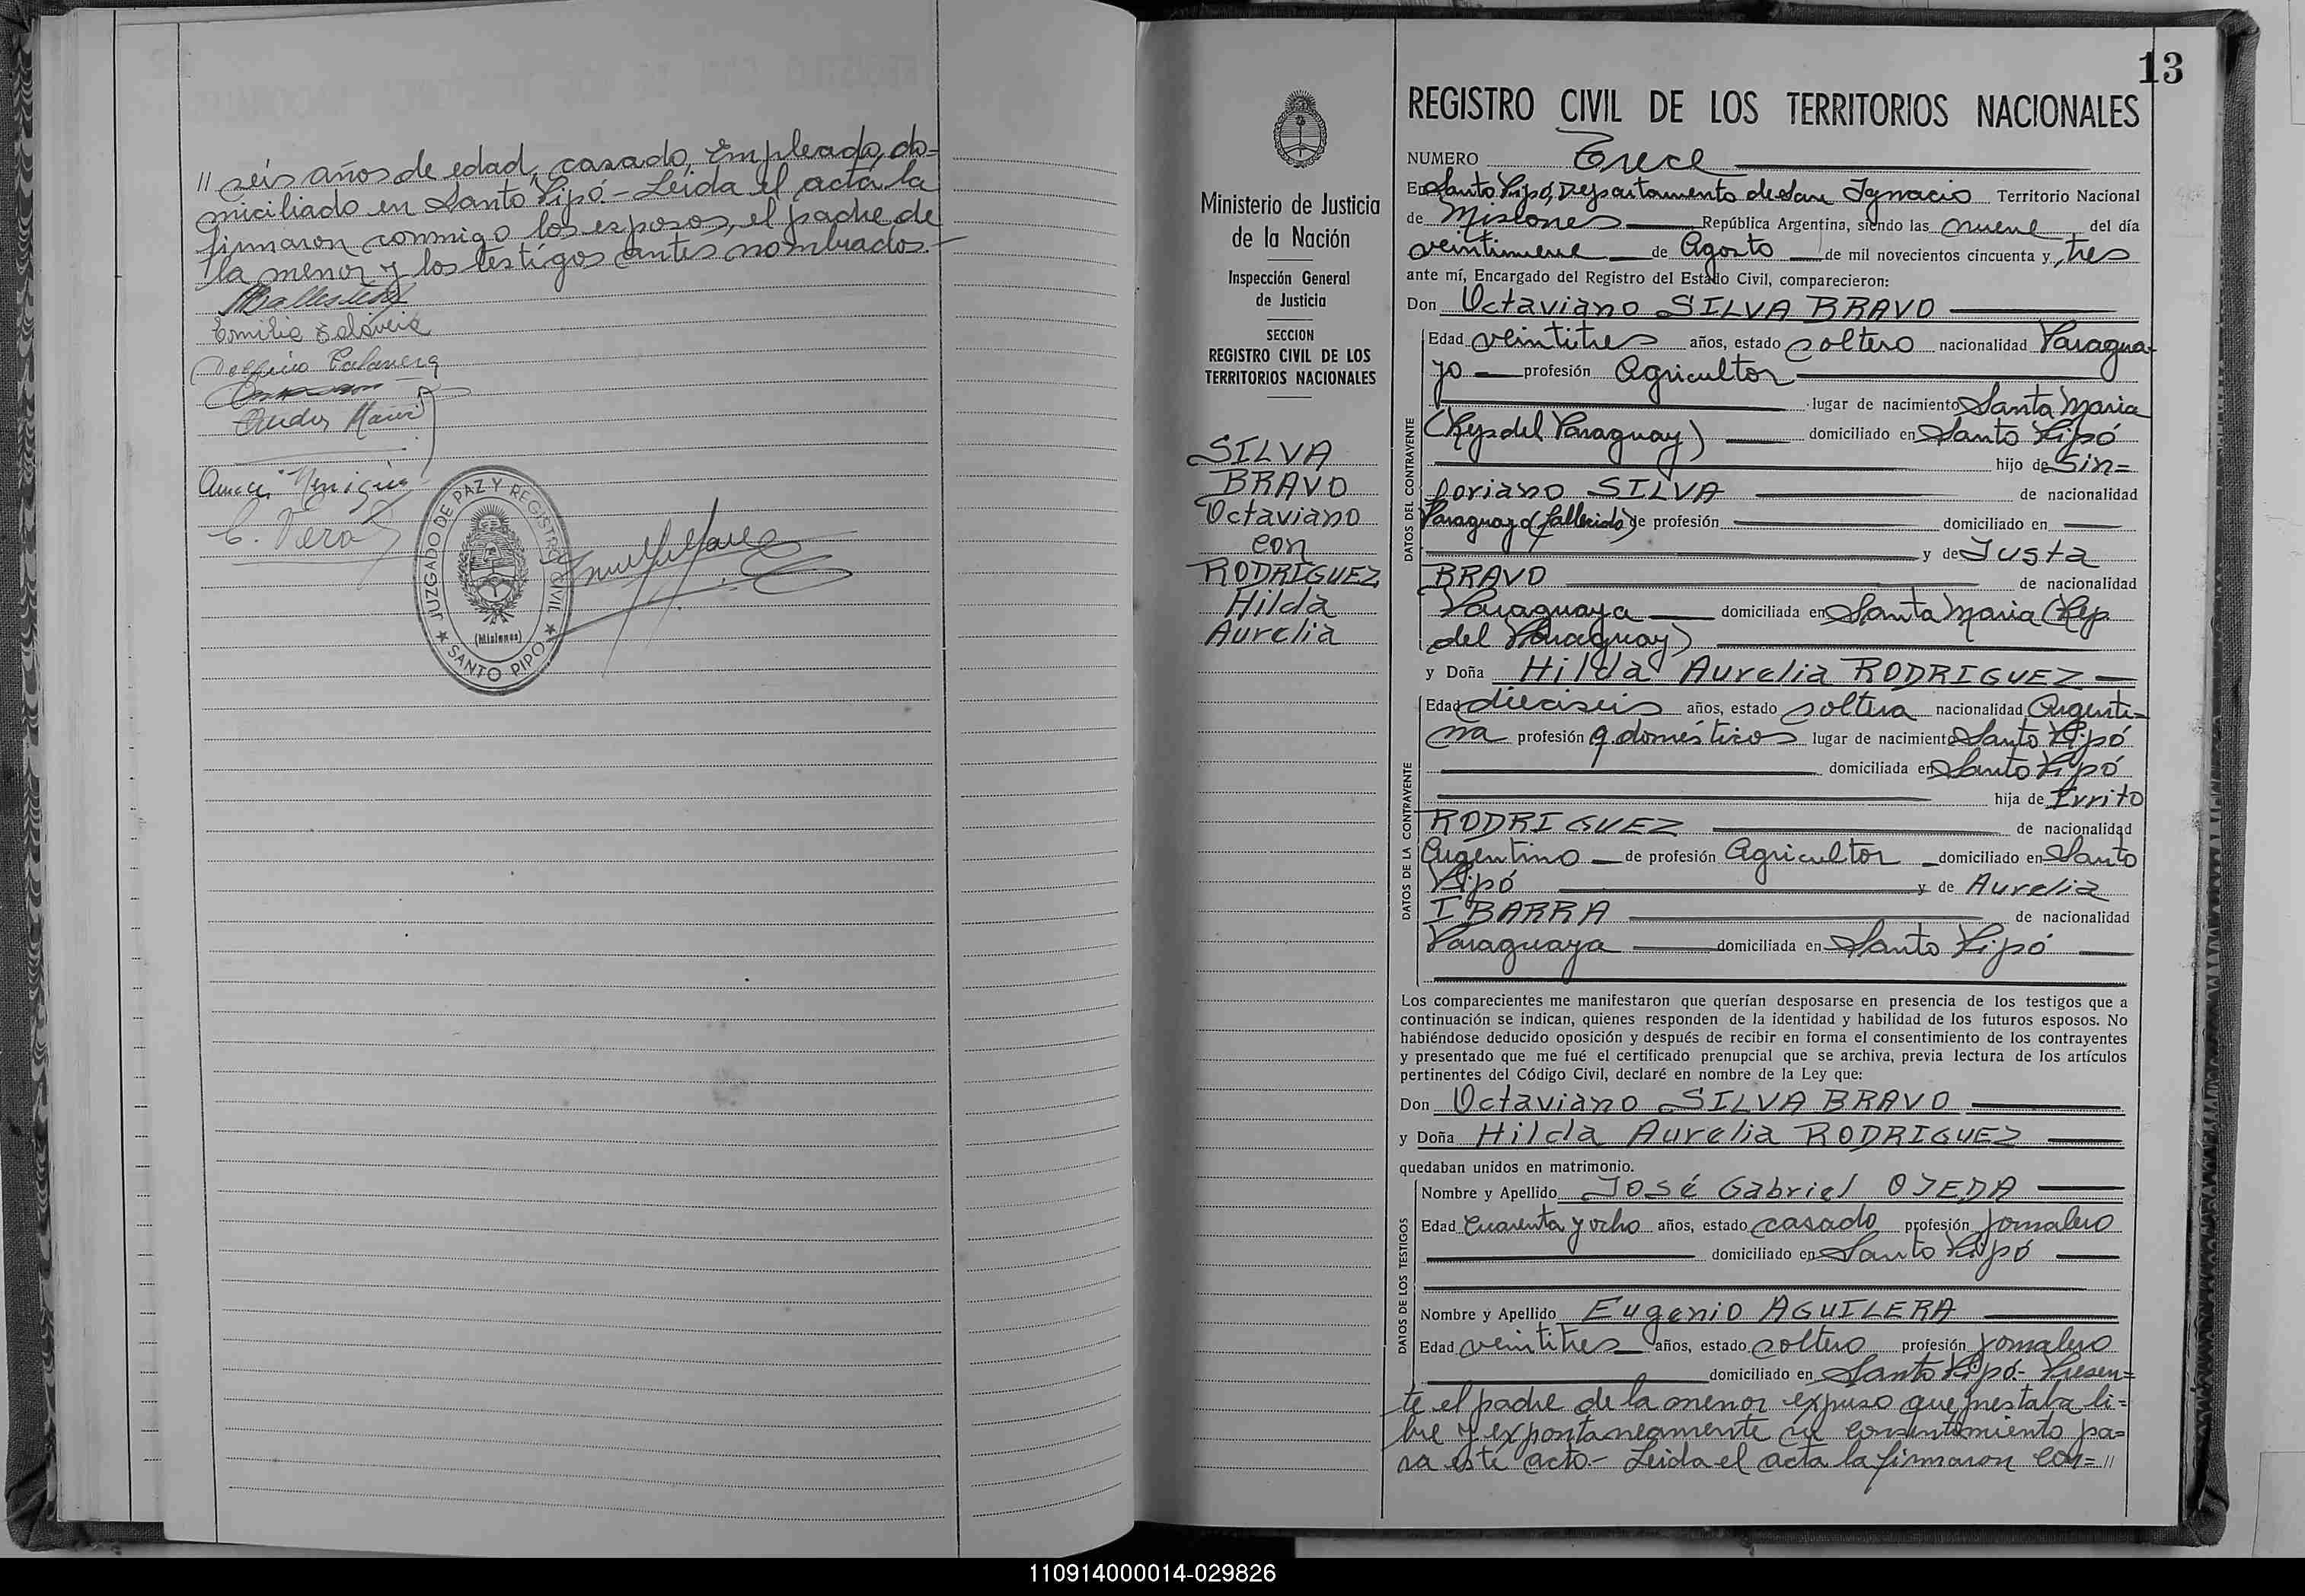 // seis años de edad, casado, Empleado, do=
miciliado en Santo Pipó.- Leida el acta la
firmaron conmigo los esposos, el padre de
la menor y los testigos antes nombrados.-
JUZGADO DE PAZ Y REGISTRO CIVIL
(Misiones)
★ SANTO PIPO ★
13
Ministerio de Justicia
de la Nación
Inspección General
de Justicia
SECCION
REGISTRO CIVIL DE LOS
TERRITORIOS NACIONALES
SILVA
BRAVO
Octaviano
con
RODRIGUEZ
Hilda
Aurelia
REGISTRO CIVIL DE LOS TERRITORIOS NACIONALES
NUMERO Trece
En Santo Pipó, Departamento de San Ignacio Territorio Nacional
de Misiones República Argentina, siendo las nueve del día
veintinueve de Agosto de mil novecientos cincuenta y tres
ante mí, Encargado del Registro del Estado Civil, comparecieron:
Don Octaviano SILVA BRAVO
DATOS DEL CONTRAYENTE
Edad veintitres años, estado soltero nacionalidad Paragua-
yo profesión Agricultor
lugar de nacimiento Santa Maria
(Rep del Paraguay) domiciliado en Santo Pipó
hijo de Sin=
foriano SILVA de nacionalidad
Paraguayo (fallecido) de profesión domiciliado en
y de Justa
BRAVO de nacionalidad
Paraguaya domiciliada en Santa Maria (Rep
del Paraguay)
y Doña Hilda Aurelia RODRIGUEZ
DATOS DE LA CONTRAYENTE
Edad dieciseis años, estado soltera nacionalidad Argenti=
na profesión q.domésticos lugar de nacimiento Santo Pipó
domiciliada en Santo Pipó
hija de Irrito
RODRIGUEZ de nacionalidad
Argentino de profesión Agricultor domiciliado en Santo
Pipó y de Aurelia
IBARRA de nacionalidad
Paraguaya domiciliada en Santo Pipó
Los comparecientes me manifestaron que querían desposarse en presencia de los testigos que a
continuación se indican, quienes responden de la identidad y habilidad de los futuros esposos. No
habiéndose deducido oposición y después de recibir en forma el consentimiento de los contrayentes
y presentado que me fué el certificado prenupcial que se archiva, previa lectura de los artículos
pertinentes del Código Civil, declaré en nombre de la Ley que:
Don Octaviano SILVA BRAVO
y Doña Hilda Aurelia RODRIGUEZ
quedaban unidos en matrimonio.
DATOS DE LOS TESTIGOS
Nombre y Apellido José Gabriel OJEDA
Edad Cuarenta y ocho años, estado casado profesión Jornalero
domiciliado en Santo Pipó
Nombre y Apellido Eugenio AGUILERA
Edad veintitres años, estado soltero profesión Jornalero
domiciliado en Santo Pipó.- Presen=
te el padre de la menor expuso que prestaba li=
bre y expontaneamente su consentimiento pa=
ra este acto.- Leida el acta la firmaron con= //
110914000014-029826